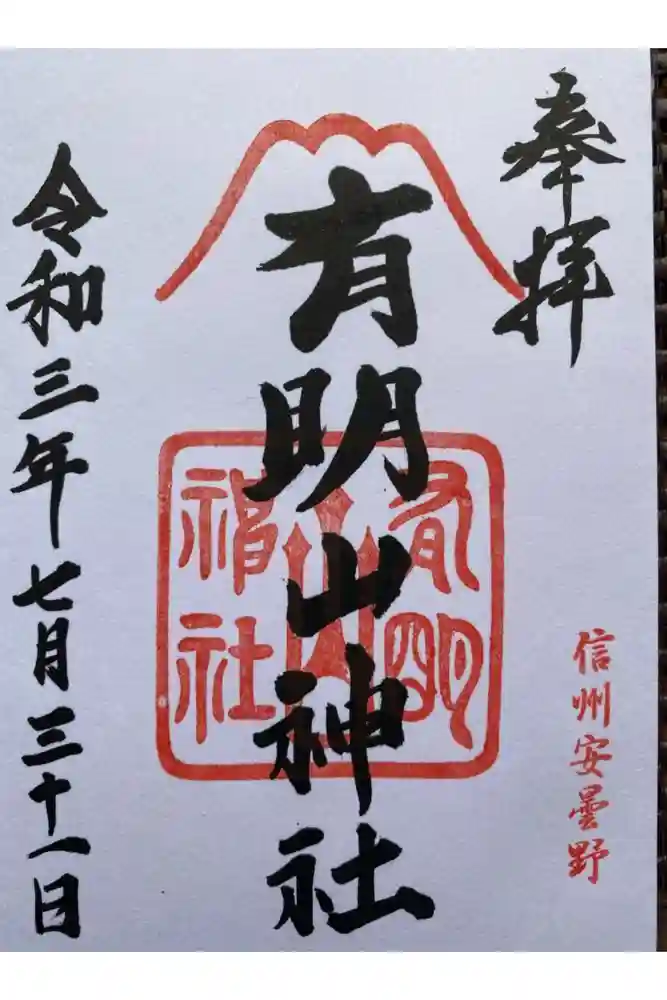 奉拝
信州安曇野
有明山神社
有明山神社
令和三年七月三十一日